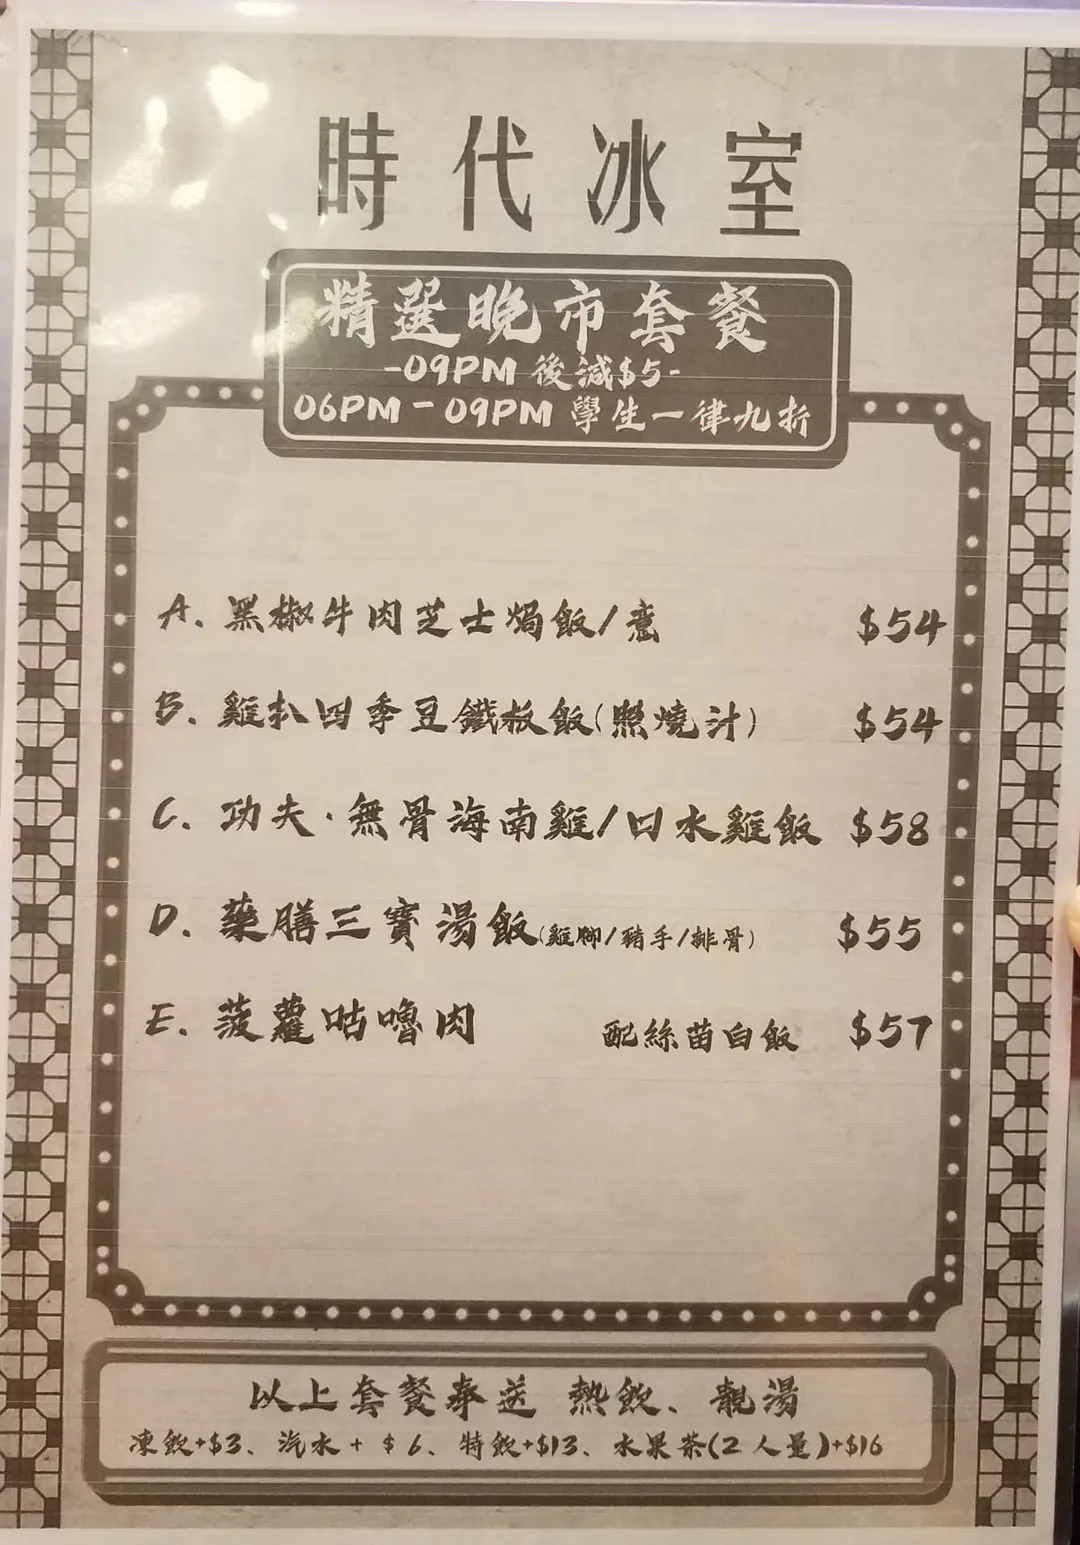 時代冰室
精選晚市套餐
-09PM 後減$5-
06PM - 09PM 學生一律九折
A. 黑椒牛肉芝士焗飯/意 $54
B. 雞扒四季豆鐵板飯(照燒汁) $54
C. 功夫·無骨海南雞/口水雞飯 $58
D. 藥膳三寶湯飯(雞腳/豬手/排骨) $55
E. 菠蘿咕嚕肉 配絲苗白飯 $57
以上套餐奉送 熱飲、靚湯
凍飲+$3、汽水+$6、特飲+$13、水果茶(2人量)+$16